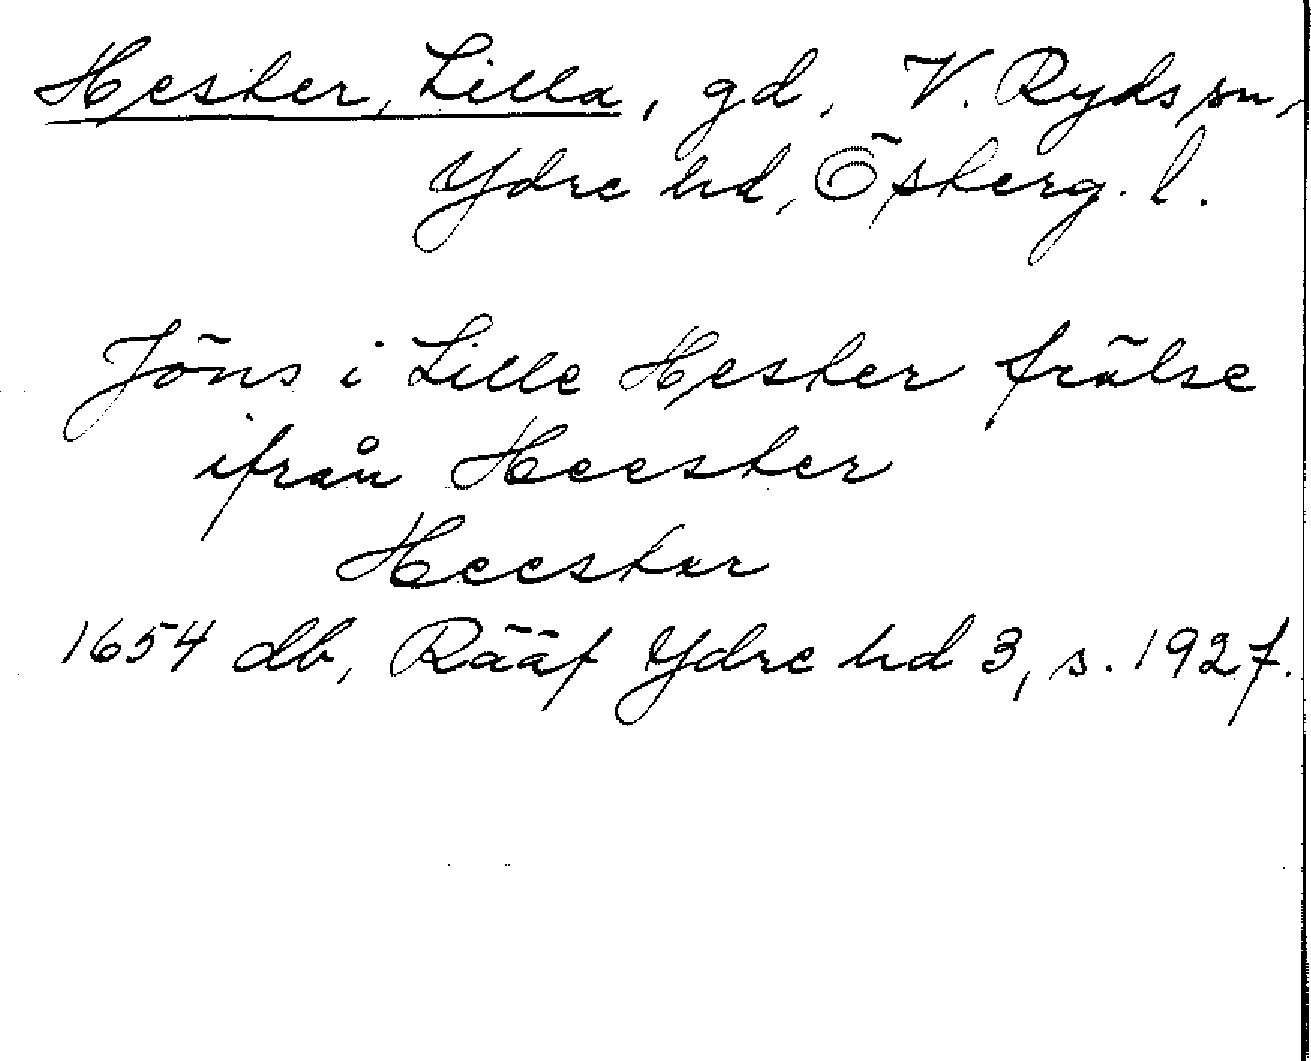 Hester, Lilla, gd, V. Ryds sn,
Ydre hd, Österg. l.
Jöns i Lille Hester frälse
ifrån Heester
Heester
1654 db, Rääf Ydre hd 3, s. 1927.